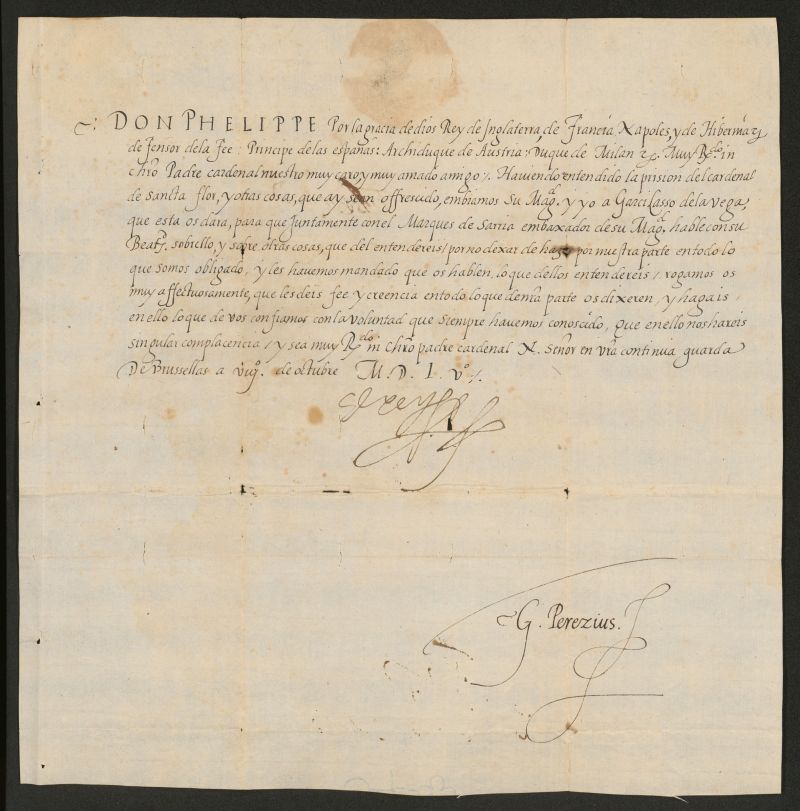 DON PHELIPPE Por la gracia de dios Rey de Inglaterra, de Francia Napoles, y de Hibernia &
defensor dela Fee: Principe de las españas: Archiduque de Austria: Duque de Milan &c. Muy R.do in
chro Padre cardenal nuestro muy caro, y muy amado amigo /. Haviendo entendido la prision del cardenal
de sancta flor, y otras cosas, que ay se an offrescido, embiamos su Mag.d y yo a Garci Lasso dela vega,
que esta os dara, para que juntamente con el Marques de Sarria embaxador de su Mag.d hable con su
Beat.d sobrello, y sobre otras cosas, que del entendereis / por no dexar de hazer por nuestra parte en todo lo
que somos obligado, y les havemos mandado que os hablen, lo que dellos entendereis / rogamos os
muy affectuosamente, que les deis fee y creencia en todo lo que de mra parte os dixeren, y hagais,
en ello lo que de vos confiamos con la voluntad que siempre havemos conoscido, Que en ello nos hareis
singular complacencia / y sea muy R.do in chro padre cardenal N. Señor en vra continua guarda
De Brussellas a viij.º de octubre M. D. L. V.º /.
G. Perezius.